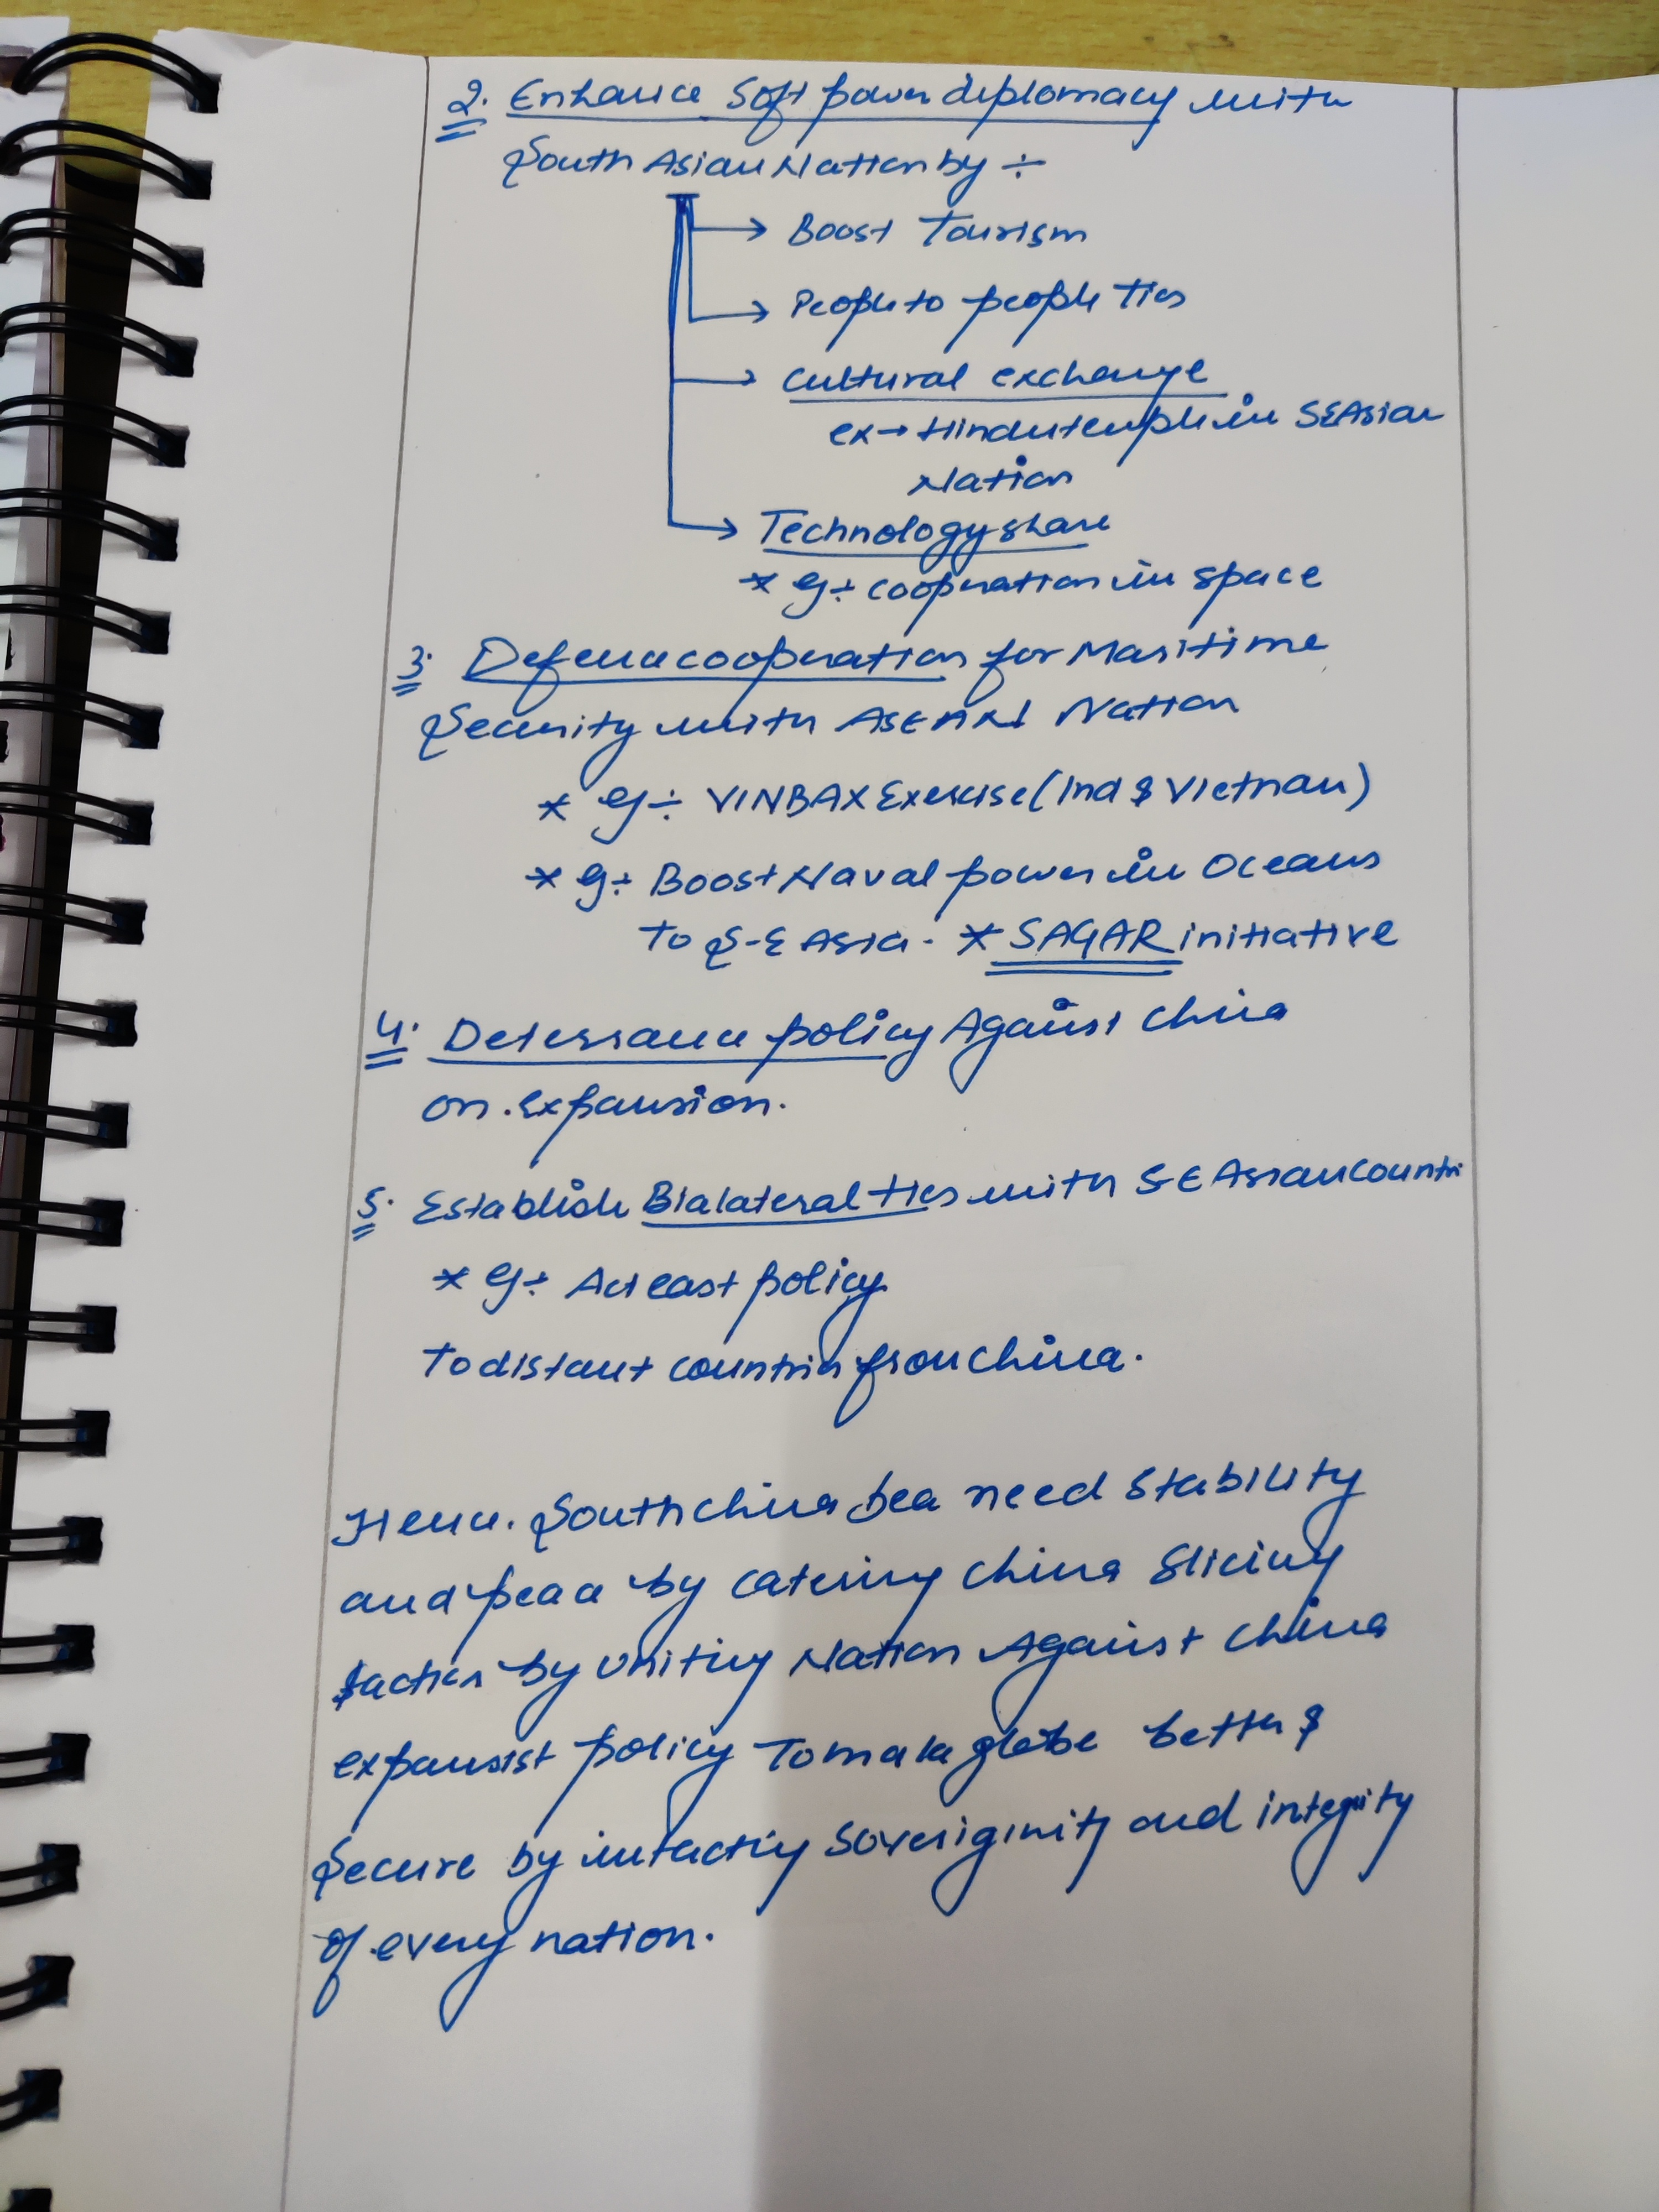 2. Enhance Soft power diplomacy with
South Asian Nation by ÷
→ Boost Tourism
→ People to people Ties
→ Cultural exchange
ex → Hindu temple in SE Asian
Nation
→ Technology share
* eg ÷ cooperation in space
3. Defence cooperation for Maritime
Security with ASEAN Nation
* eg ÷ VINBAX Exercise (Ind & Vietnam)
* eg ÷ Boost Naval power in Oceans
To S-E Asia. * SAGAR initiative
4. Deterrance policy Against China
on expansion.
5. Establish Bialateral ties with S-E Asian Countri
* eg ÷ Act east policy
To distant countries from China.
Hence. South China Sea need Stability
and peace by catering China Slicing
tactics by uniting Nation Against China
expansist policy To make globe better &
Secure by intacting Soveriginity and integrity
of every nation.